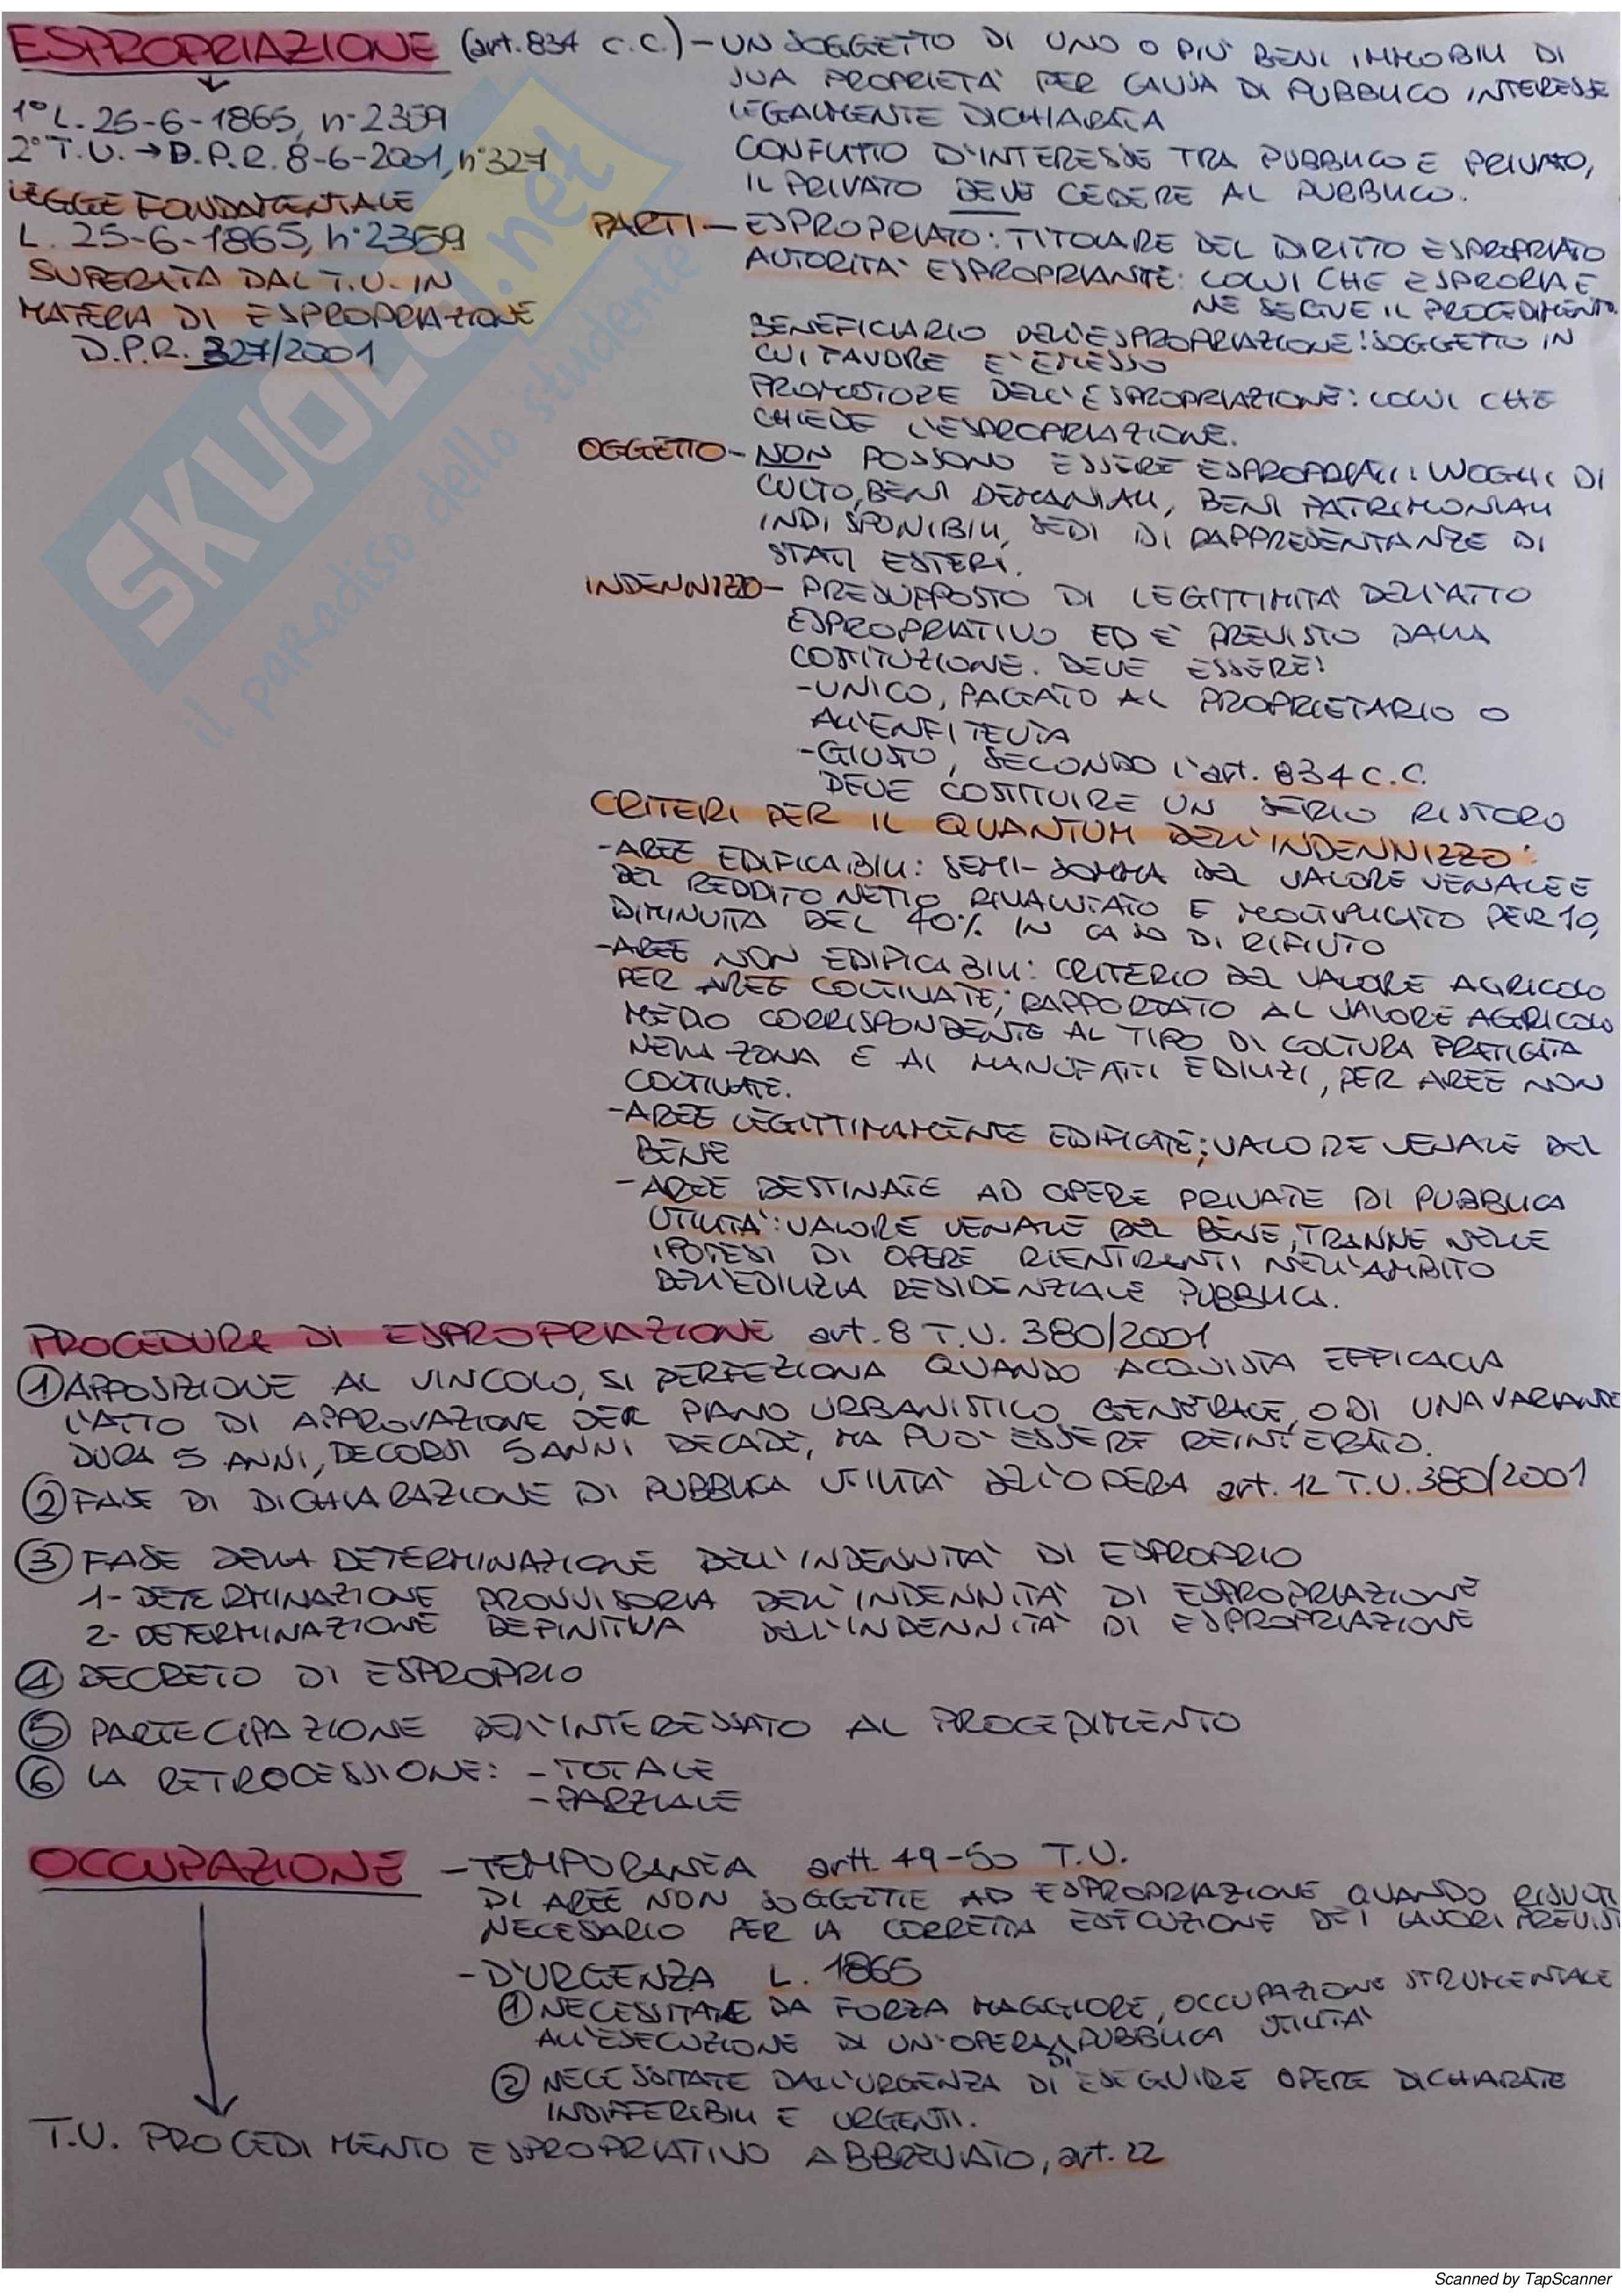 ESPROPRIAZIONE (art. 834 c.c.) - UN SOGGETTO DI UNO O PIÙ BENI IMMOBILI DI
SUA PROPRIETÀ PER CAUSA DI PUBBLICO INTERESSE
LEGALMENTE DICHIARATA
CONFLITTO D'INTERESSE TRA PUBBLICO E PRIVATO,
IL PRIVATO DEVE CEDERE AL PUBBLICO.
1° L. 25-6-1865, n° 2359
2° T.U. → D.P.R. 8-6-2001, n° 327
LEGGE FONDAMENTALE
L. 25-6-1865, n° 2359
SUPERATA DAL T.U. IN
MATERIA DI ESPROPRIAZIONE
D.P.R. 327/2001
PARTI - ESPROPRIATO: TITOLARE DEL DIRITTO ESPROPRIATO
AUTORITÀ ESPROPRIANTE: COLUI CHE ESPRORIA E
NE SEGUE IL PROCEDIMENTO.
BENEFICIARIO DELL'ESPROPRIAZIONE: SOGGETTO IN
CUI FAVORE È EMESSO
PROMOTORE DELL'ESPROPRIAZIONE: COLUI CHE
CHIEDE L'ESPROPRIAZIONE.
OGGETTO - NON POSSONO ESSERE ESPROPRIATI: LUOGHI DI
CULTO, BENI DEMANIALI, BENI PATRIMONIALI
INDISPONIBILI, SEDI DI RAPPRESENTANZE DI
STATI ESTERI.
INDENNIZZO - PRESUPPOSTO DI LEGITTIMITÀ DELL'ATTO
ESPROPRIATIVO ED È PREVISTO DALLA
COSTITUZIONE. DEVE ESSERE:
- UNICO, PAGATO AL PROPRIETARIO O
ALL'ENFITEUTA
- GIUSTO, SECONDO L'art. 834 c.c.
DEVE COSTITUIRE UN SERIO RISTORO
CRITERI PER IL QUANTUM DELL'INDENNIZZO:
- AREE EDIFICABILI: SEMI-SOMMA DEL VALORE VENALE E
DEL REDDITO NETTO RIVALUTATO E MOLTIPLICATO PER 10,
DIMINUITA DEL 40% IN CASO DI RIFIUTO
- AREE NON EDIFICABILI: CRITERIO DEL VALORE AGRICOLO
PER AREE COLTIVATE; RAPPORTATO AL VALORE AGRICOLO
MEDIO CORRISPONDENTE AL TIPO DI COLTURA PRATICATA
NELLA ZONA E AI MANUFATTI EDILIZI, PER AREE NON
COLTIVATE.
- AREE LEGITTIMAMENTE EDIFICATE: VALORE VENALE DEL
BENE
- AREE DESTINATE AD OPERE PRIVATE DI PUBBLICA
UTILITÀ: VALORE VENALE DEL BENE, TRANNE NELLE
IPOTESI DI OPERE RIENTRANTI NELL'AMBITO
DELL'EDILIZIA RESIDENZIALE PUBBLICA.
PROCEDURA DI ESPROPRIAZIONE art. 8 T.U. 380/2001
① APPOSIZIONE AL VINCOLO, SI PERFEZIONA QUANDO ACQUISTA EFFICACIA
L'ATTO DI APPROVAZIONE DEL PIANO URBANISTICO GENERALE, O DI UNA VARIANTE
DURA 5 ANNI, DECORSI 5 ANNI DECADE, MA PUÒ ESSERE REINTERATO.
② FASE DI DICHIARAZIONE DI PUBBLICA UTILITÀ DELL'OPERA art. 12 T.U. 380/2001
③ FASE DELLA DETERMINAZIONE DELL'INDENNITÀ DI ESPROPRIO
1- DETERMINAZIONE PROVVISORIA DELL'INDENNITÀ DI ESPROPRIAZIONE
2- DETERMINAZIONE DEFINITIVA DELL'INDENNITÀ DI ESPROPRIAZIONE
④ DECRETO DI ESPROPRIO
⑤ PARTECIPAZIONE DELL'INTERESSATO AL PROCEDIMENTO
⑥ LA RETROCESSIONE: - TOTALE
- PARZIALE
OCCUPAZIONE - TEMPORANEA artt. 49-50 T.U.
DI AREE NON SOGGETTE AD ESPROPRIAZIONE QUANDO RISULTI
NECESSARIO PER LA CORRETTA ESECUZIONE DEI LAVORI PREVISTI
- D'URGENZA L. 1865
① NECESSITATE DA FORZA MAGGIORE, OCCUPAZIONE STRUMENTALE
ALL'ESECUZIONE DI UN'OPERA DI PUBBLICA UTILITÀ
② NECESSITATE DALL'URGENZA DI ESEGUIRE OPERE DICHIARATE
INDIFFERIBILI E URGENTI.
T.U. PROCEDIMENTO ESPROPRIATIVO ABBREVIATO, art. 22
SKUOLA.net
il paradiso dello studente
Scanned by TapScanner